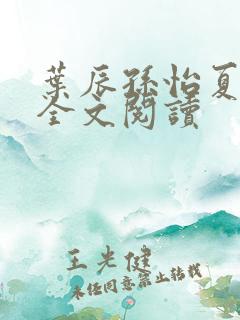 葉辰孫怡夏
全文閱讀
王光健
未经同意禁止转载